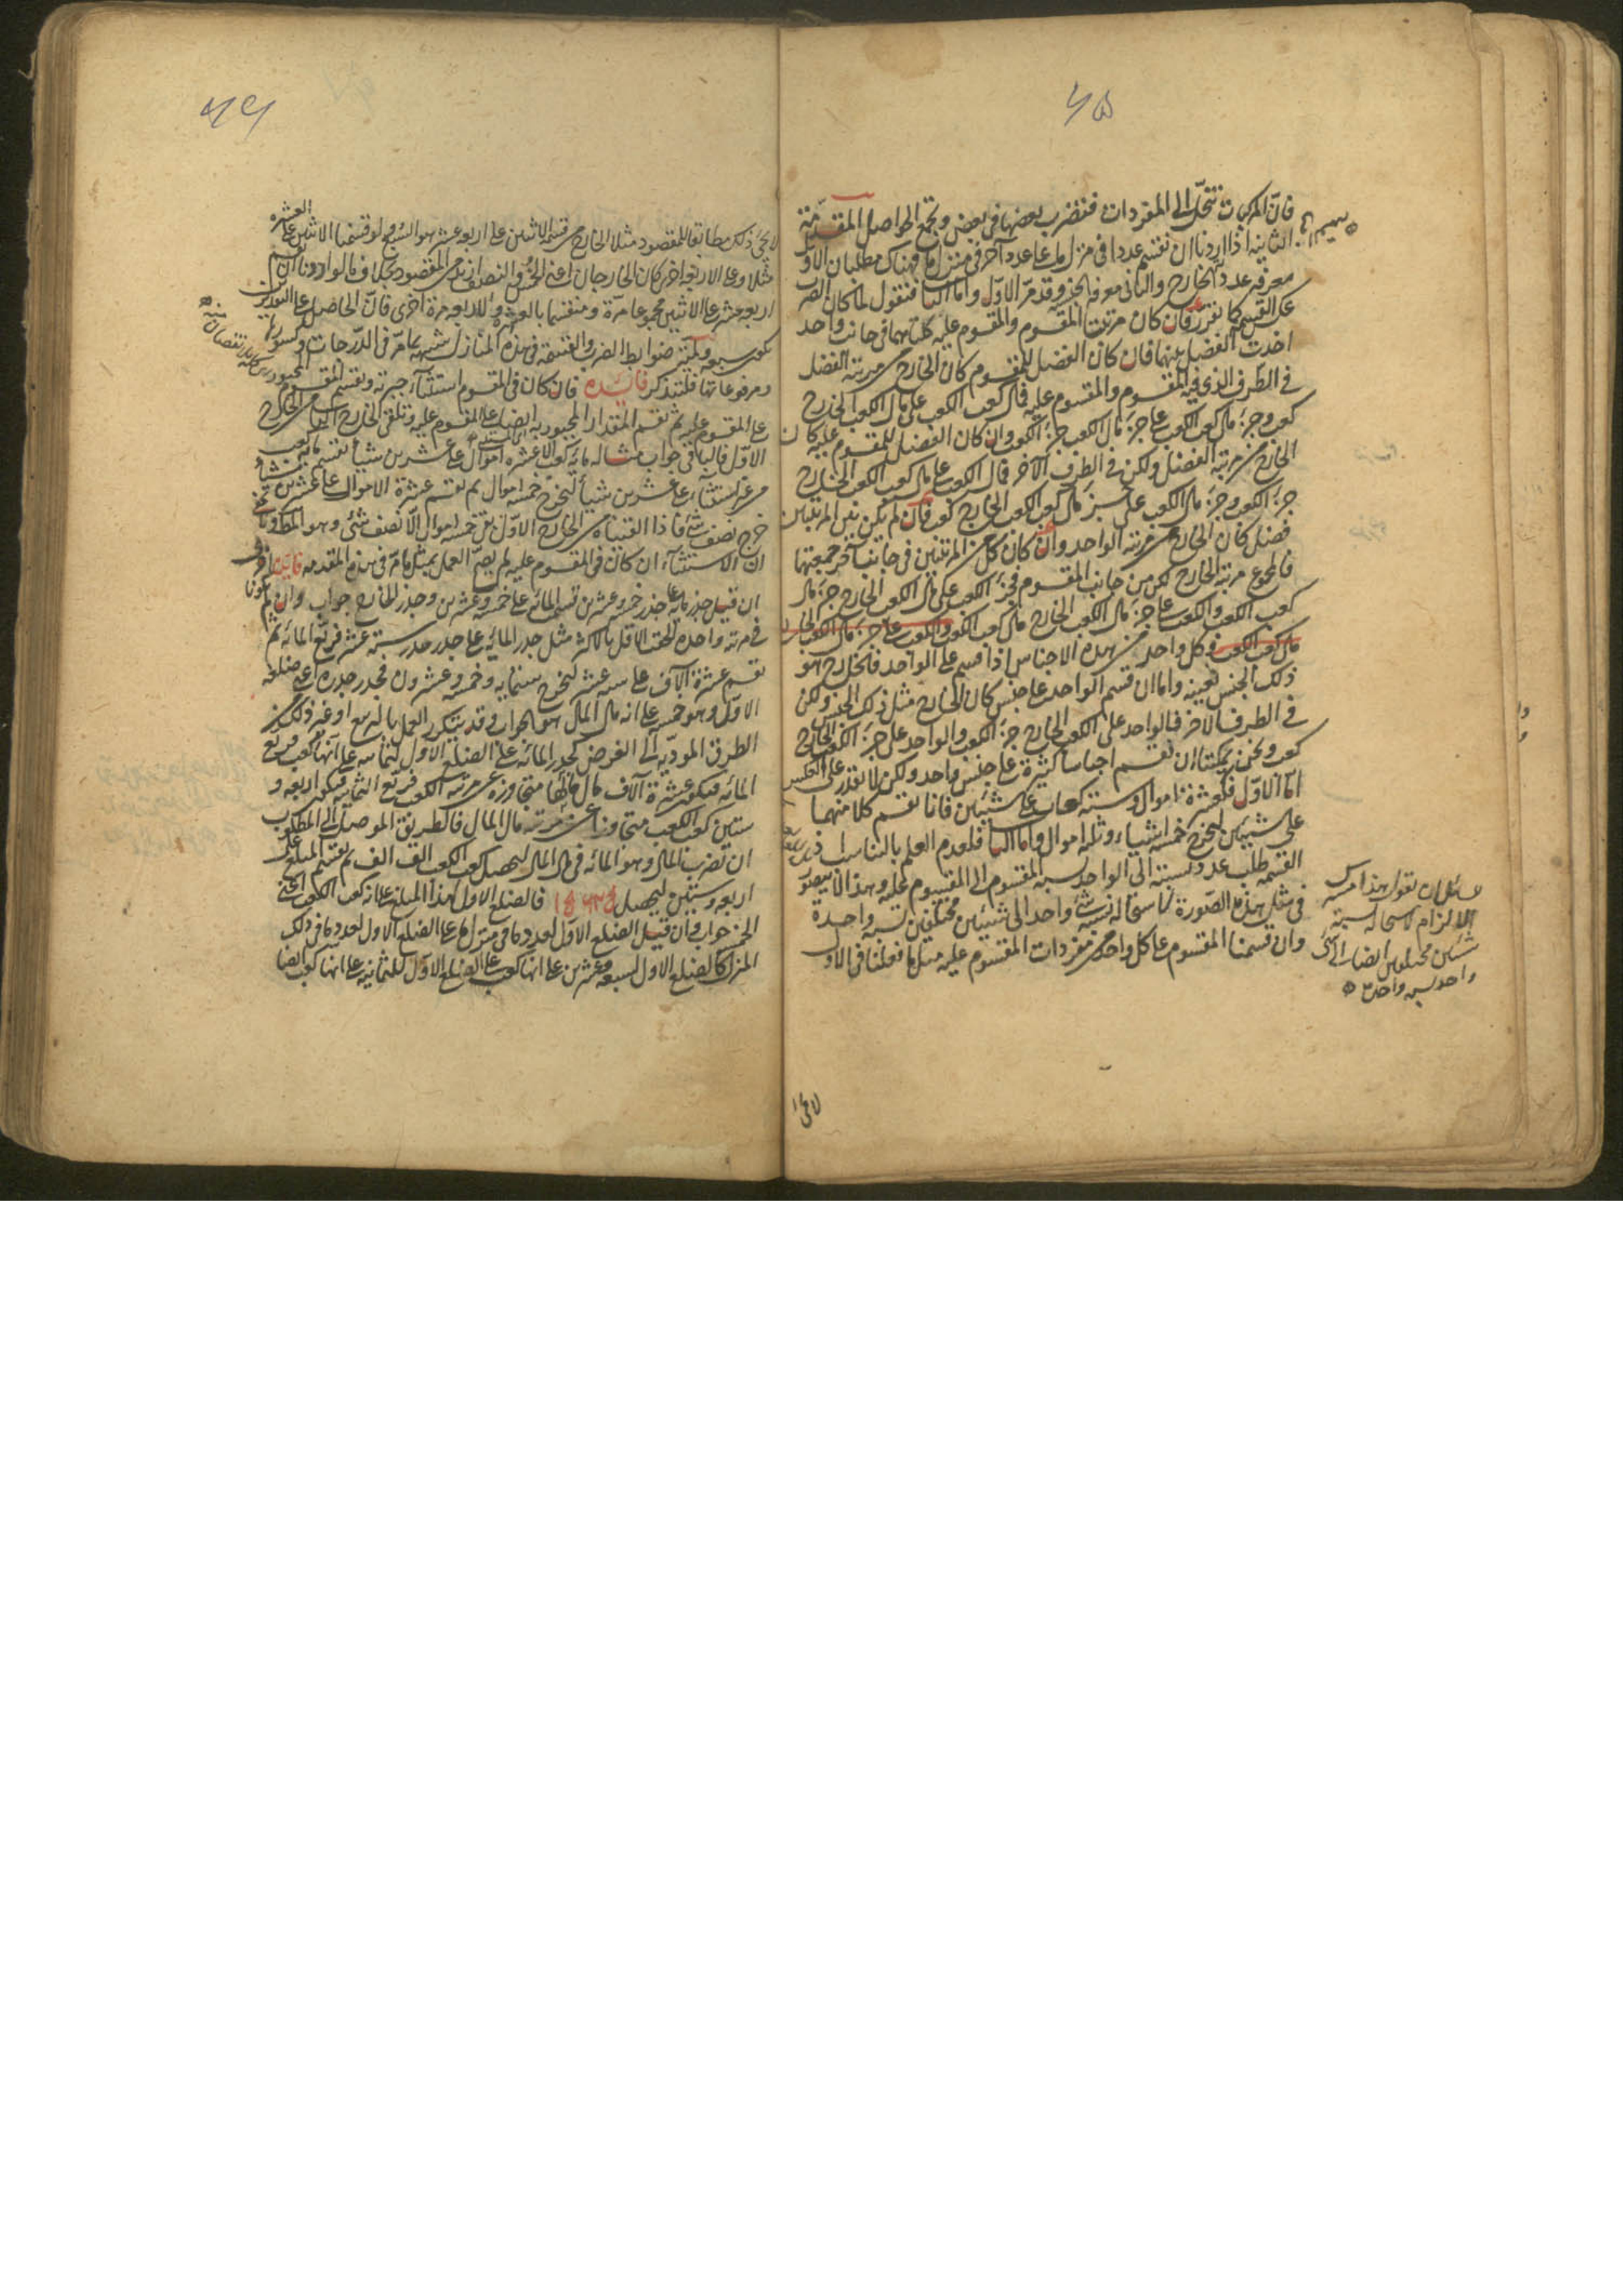 ٦٥
فانّ المركبات تنحلّ الى المفردات فتضرب بعضها فى بعض وتجمع الحواصل المقدّمة
الثانية اذا اردنا ان نقسم عددا فى منزل ما على عدد آخر فى منزل ما فهناك مطلبان الاوّل
معرفة عدد الخارج والثانى معرفة الجنس وقد مرّ الاوّل واما الثانى فنقول لما كان الضرب
عكس القسمة كما تقرر فان كان مرتبتا المقسوم والمقسوم عليه كلتيهما فى جانب واحد
اخذت الفضل بينهما فان كان الفضل للمقسوم كان الخارج من مرتبة الفضل
فى الطرف الذى فيه المقسوم والمقسوم عليه فمال كعب الكعب على مال الكعب الخارج
كعب وجزء مال كعب الكعب على جزء مال الكعب جزء الكعب وان كان الفضل للمقسوم عليه كان
الخارج من مرتبة الفضل ولكن فى الطرف الآخر فمال الكعب على مال كعب الكعب الخارج
جزء الكعب وجزء مال الكعب على جزء مال كعب الكعب الخارج كعب فان لم يكن بين المرتبتين
فضل كان الخارج من مرتبة الواحد وان كان كل من المرتبتين فى جانب آخر جمعتهما
فالمجموع مرتبة الخارج لكن من جانب المقسوم فجزء الكعب على مال الكعب الخارج جزء مال
كعب الكعب والكعب على جزء مال الكعب الخارج مال كعب الكعب والكعب على جزء مال الكعب الخارج
مال كعب الكعب وكل واحد من هذه الاجناس اذا قسم على الواحد فالخارج هو
ذلك الجنس بعينه واما ان قسم الواحد على جنس كان الخارج مثل ذلك الجنس ولكن
فى الطرف الآخر فالواحد على الكعب الخارج جزء الكعب والواحد على جزء الكعب الخارج
كعب ونحن يمكننا ان نقسم اجناسا كثيرة على جنس واحد ولكن لا نقدر على العكس
امّا الاوّل فكعشرة اموال وستة كعاب على شيئين فانا نقسم كلا منهما
على شيئين ليخرج خمسة اشياء وثلثة اموال واما الثانى فلعدم العلم بالتناسب
القسمة طلب عدد نسبته الى الواحد كنسبة المقسوم الى المقسوم عليه وهذا لا يتصوّر
فى مثل هذه الصّورة لاستحالة نسبة شئ واحد الى شيئين مختلفين نسبة واحدة
وان قسمنا المقسوم على كل واحد من مفردات المقسوم عليه مثل ما فعلنا فى الاول
لقائل ان يقول هذا
الالزام لاستحالة نسبة
شيئين مختلفين ايضا الى شئ
واحد نسبة واحدة
٦٦
لا يجئ ذلك مطابقا للمقصود مثلا الخارج من قسمة الاثنين على اربعة عشر هو السبع ولو قسمنا الاثنين على العشرة
مثلا وعلى الاربعة اخرى كان الخارجان اعنى الخمس والنصف ازيد من المقصود بخلاف ما لو اردنا ان نقسم
اربعة عشر على الاثنين مجموعا مرّة ومنقسما بالعشرة والاربعة مرة اخرى فانّ الحاصل على التقديرين
يكون سبعة ولكنّه ضوابط الضرب والقسمة فى هذه المنازل شبيهة بما مرّ فى الدّرجات وكسورها
ومرفوعاتها فلتتذكر فائدة فان كان فى المقسوم استثناء جبرته وتقسم المقسوم المجبور
على المقسوم عليه ثم تقسم المقدار المجبور به ايضا على المقسوم عليه وتلقى الخارج الثانى من الخارج
الاوّل فالباقى جواب مثاله مائة كعب الا عشرة اموال على عشرين شيئا تقسم مائة كعب
من غير استثناء على عشرين شيئا ليخرج خمسة اموال ثم نقسم عشرة الاموال على عشرين شيئا
خرج نصف شئ فاذا القيناه من الخارج الاوّل بقى خمسة اموال الّا نصف شئ وهو المطلوب
ان الاستثناء ان كان فى المقسوم عليه لم يصحّ العمل بمثل ما مرّ فى هذه المقدمة فائدة اخرى
ان قيل جذر مائة على جذر خمسة وعشرين نقسم المائة على خمسة وعشرين وجذر الخارج جواب وان لم يكونا
فى مرتبة واحدة تلحق الاقل بالاكثر مثل جذر المائة على جذر جذر ستة عشر فربّع المائة ثم
تقسم عشرة آلاف على ستة عشر ليخرج ستمائة وخمسة وعشرون فجذر جذره اعنى ضلعه
الاوّل وهو خمسة على انه مال المال هو الجواب وقد يتكرر العمل بالتربيع او غير ذلك من
الطرق المودّية الى الغرض كجذر المائة على الضلع الاول لثمانية على انها كعب فربع
المائة فيكون عشرة آلاف مال مالها متجاوزة عن مرتبة الكعب فربّع الثمانية فيكون اربعة و
ستين كعب الكعب متجاوزا عن مرتبة مال المال فالطريق الموصل الى المطلوب
ان تضرب المال وهو المائة فى مال المال ليحصل كعب الكعب الف الف ثم تقسم المبلغ على
اربعة وستين ليحصل ١٥٦٢٥ فالضلع الاول لهذا المبلغ على انه كعب الكعب اعنى
الخمسة جواب فان قيل الضلع الاوّل لعدد ما فى منزل ما على الضلع الاول لعدد ما فى ذلك
المنزل كالضلع الاول لسبعة وعشرين على انها كعب على الضلع الاوّل للثمانية على انها كعب ايضا